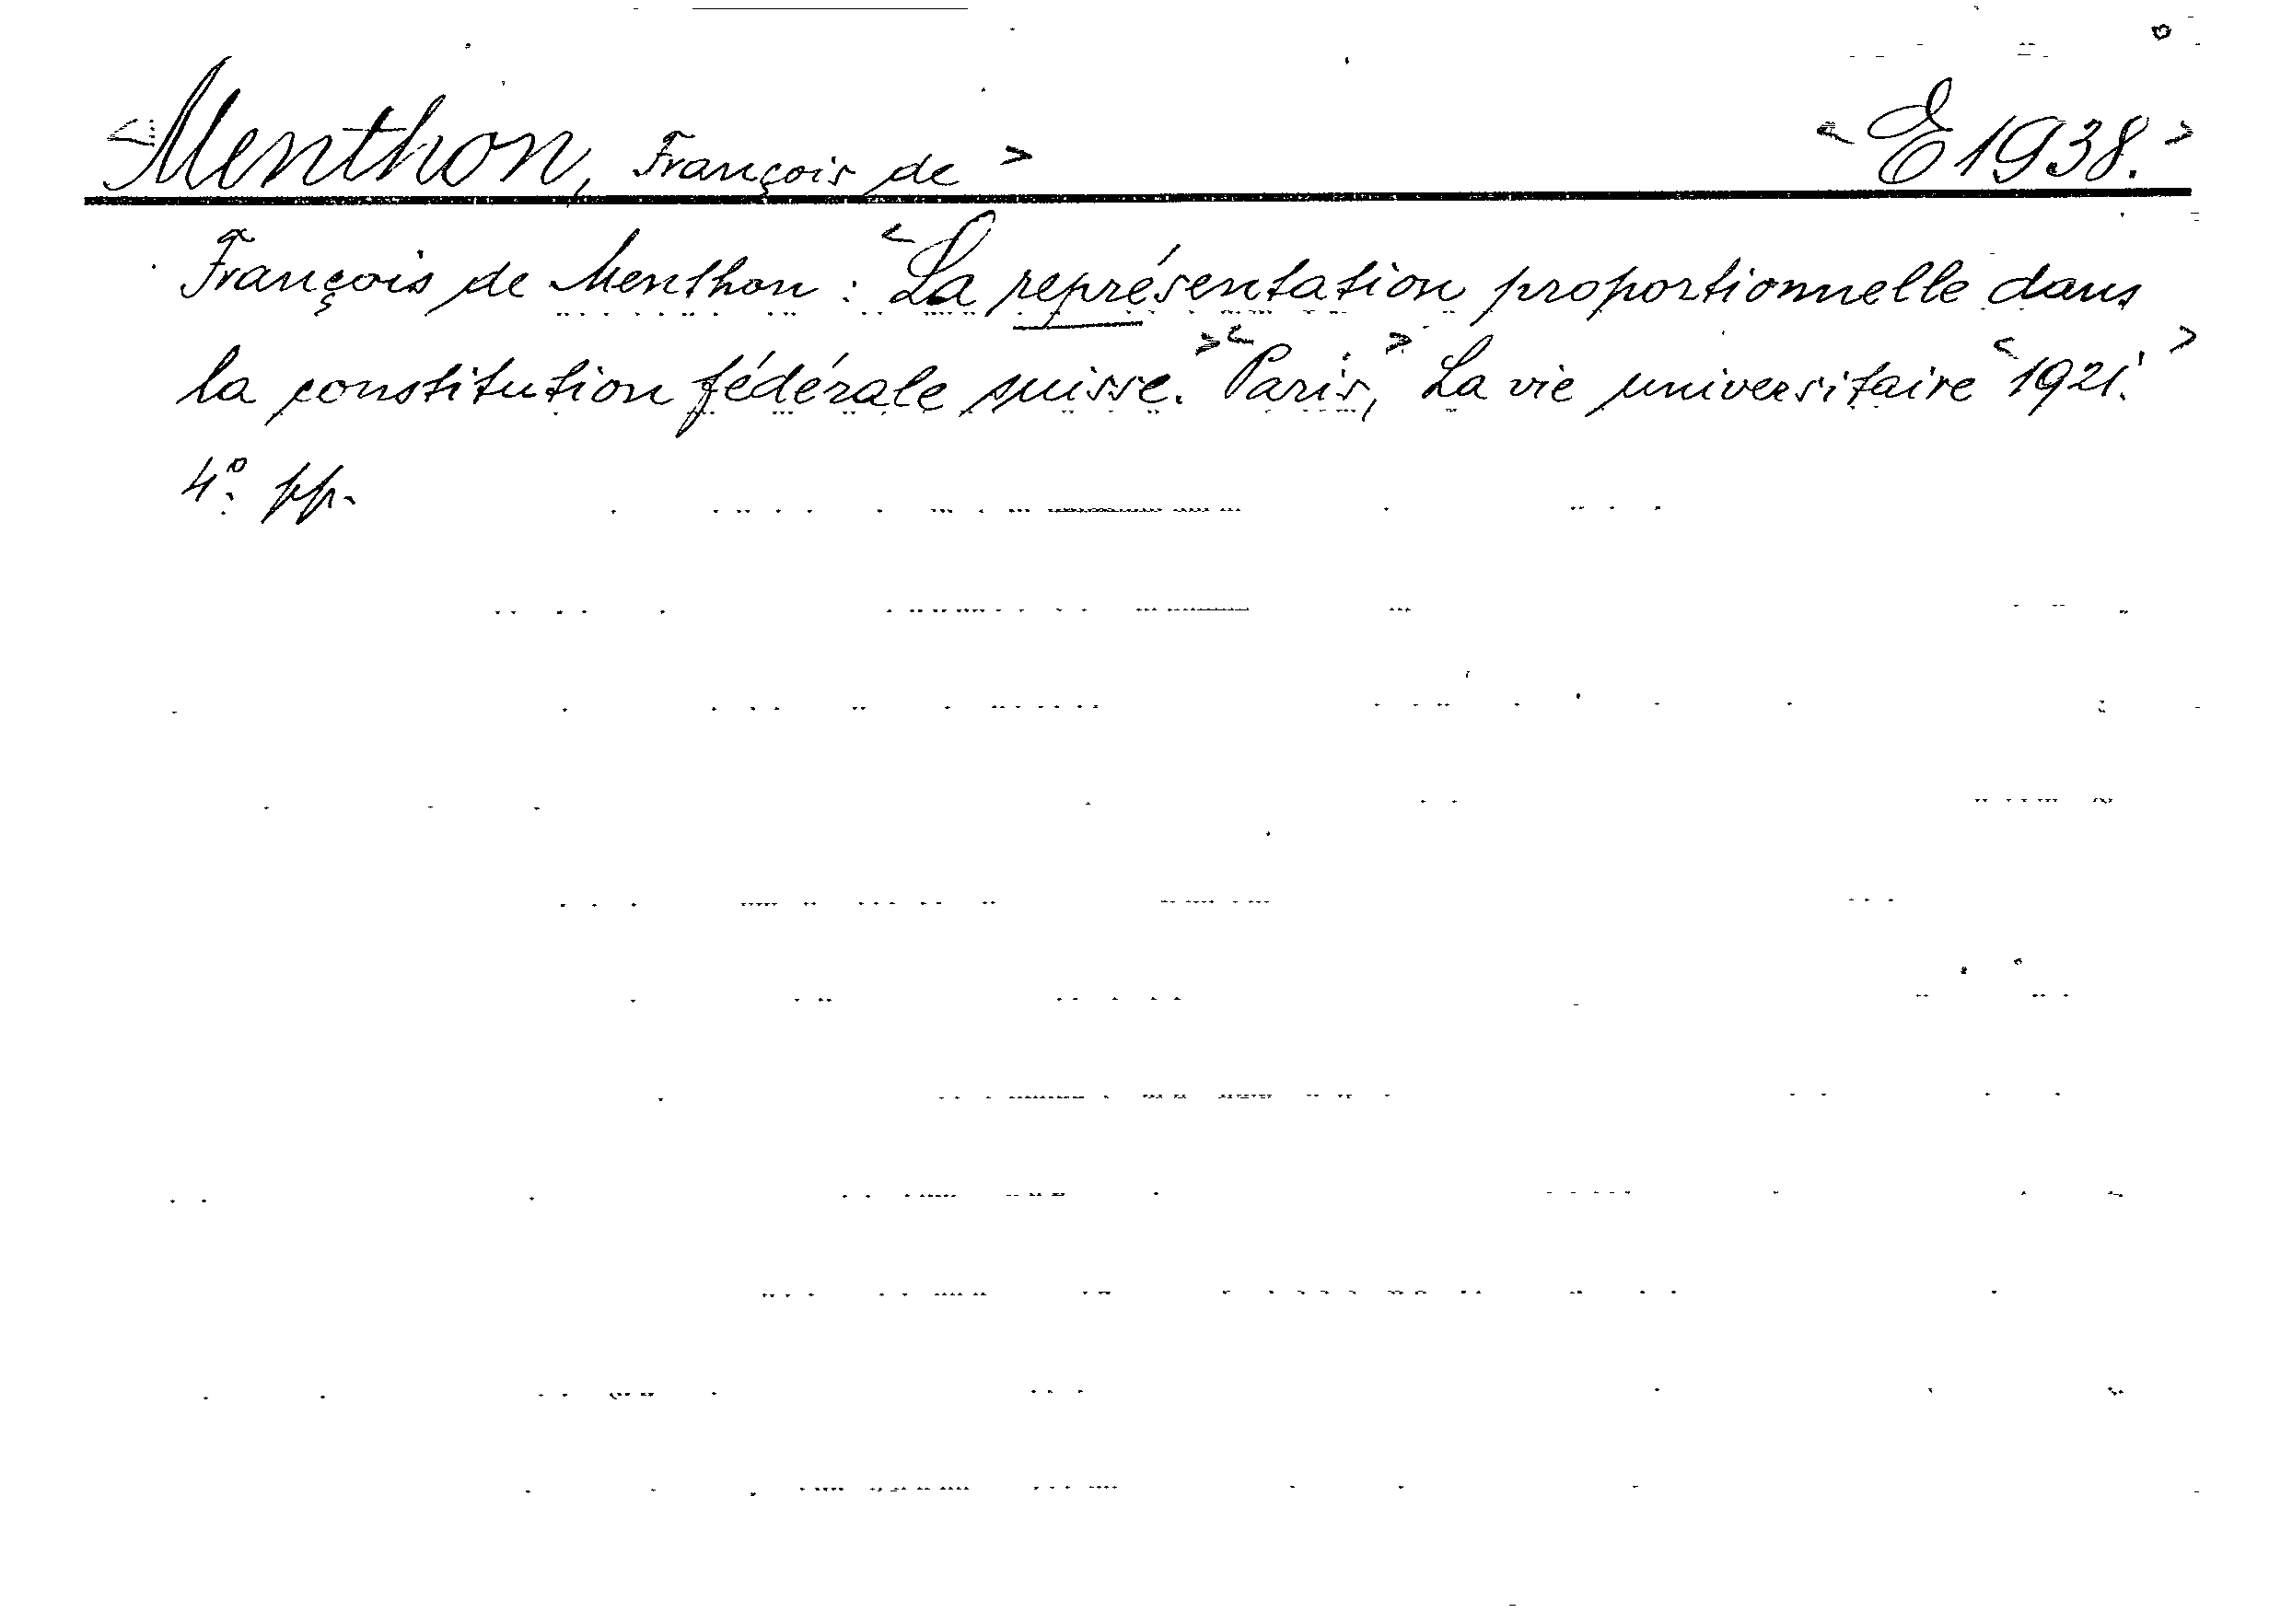 <Menthon, François de> <E 1938.>
François de Menthon : <La représentation proportionnelle dans
la constitution fédérale suisse.> <Paris,> La vie universitaire <1921.>
4°. pp.